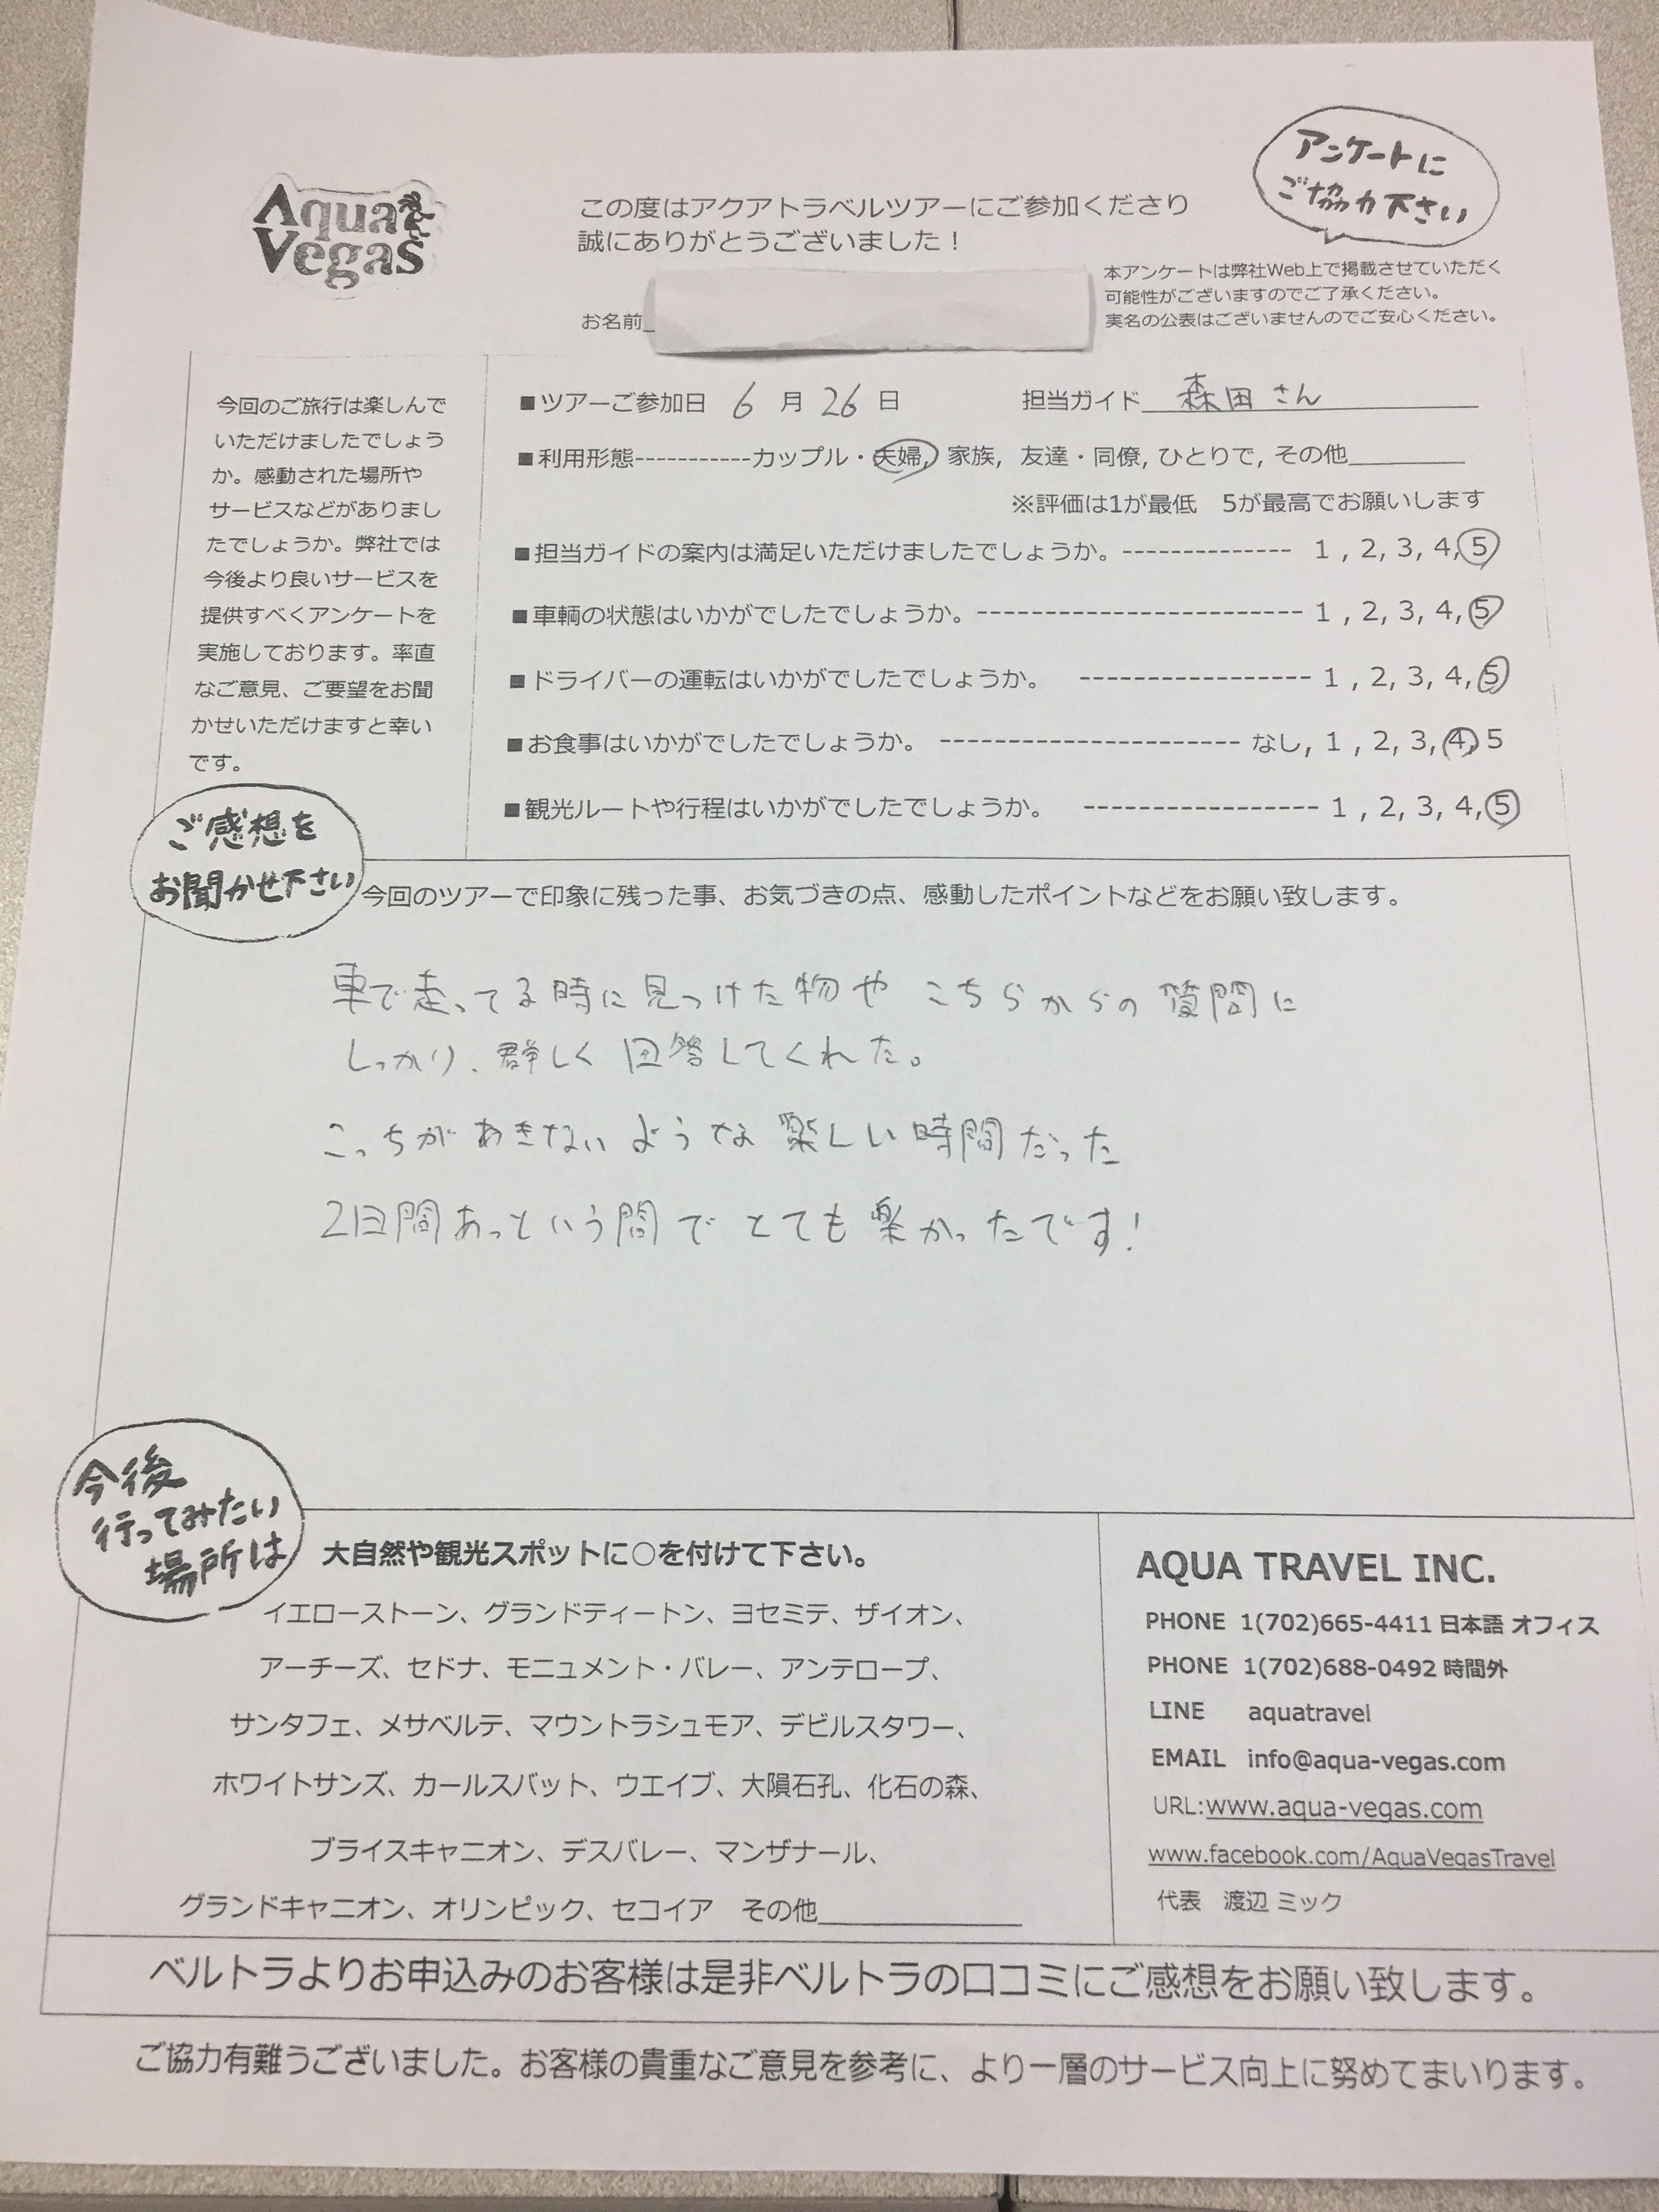 Aqua
Vegas
この度はアクアトラベルツアーにご参加くださり
誠にありがとうございました！
アンケートに
ご協力下さい
本アンケートは弊社Web上で掲載させていただく
可能性がございますのでご了承ください。
実名の公表はございませんのでご安心ください。
お名前
今回のご旅行は楽しんで
いただけましたでしょう
か。感動された場所や
サービスなどがありまし
たでしょうか。弊社では
今後より良いサービスを
提供すべくアンケートを
実施しております。率直
なご意見、ご要望をお聞
かせいただけますと幸い
です。
■ツアーご参加日 6 月 26 日 担当ガイド 森田さん
■利用形態-----------カップル・夫婦, 家族, 友達・同僚, ひとりで, その他________
※評価は1が最低 5が最高でお願いします
■担当ガイドの案内は満足いただけましたでしょうか。-------------- 1 , 2, 3, 4, 5
■車輌の状態はいかがでしたでしょうか。------------------------- 1 , 2, 3, 4, 5
■ドライバーの運転はいかがでしたでしょうか。 ------------------ 1 , 2, 3, 4, 5
■お食事はいかがでしたでしょうか。 ----------------------- なし, 1 , 2, 3, 4, 5
■観光ルートや行程はいかがでしたでしょうか。 ------------------ 1 , 2, 3, 4, 5
ご感想を
お聞かせ下さい
今回のツアーで印象に残った事、お気づきの点、感動したポイントなどをお願い致します。
車で走ってる時に見つけた物や こちらからの質問に
しっかり、群しく 回答してくれた。
こっちがあきないような楽しい時間だった
2日間あっという間で とても楽かったです!
今後
行ってみたい
場所は
大自然や観光スポットに○を付けて下さい。
イエローストーン、グランドティートン、ヨセミテ、ザイオン、
アーチーズ、セドナ、モニュメント・バレー、アンテロープ、
サンタフェ、メサベルテ、マウントラシュモア、デビルスタワー、
ホワイトサンズ、カールスバット、ウエイブ、大隕石孔、化石の森、
ブライスキャニオン、デスバレー、マンザナール、
グランドキャニオン、オリンピック、セコイア その他______________
AQUA TRAVEL INC.
PHONE 1(702)665-4411 日本語 オフィス
PHONE 1(702)688-0492 時間外
LINE aquatravel
EMAIL info@aqua-vegas.com
URL:www.aqua-vegas.com
www.facebook.com/AquaVegasTravel
代表 渡辺 ミック
ベルトラよりお申込みのお客様は是非ベルトラの口コミにご感想をお願い致します。
ご協力有難うございました。お客様の貴重なご意見を参考に、より一層のサービス向上に努めてまいります。